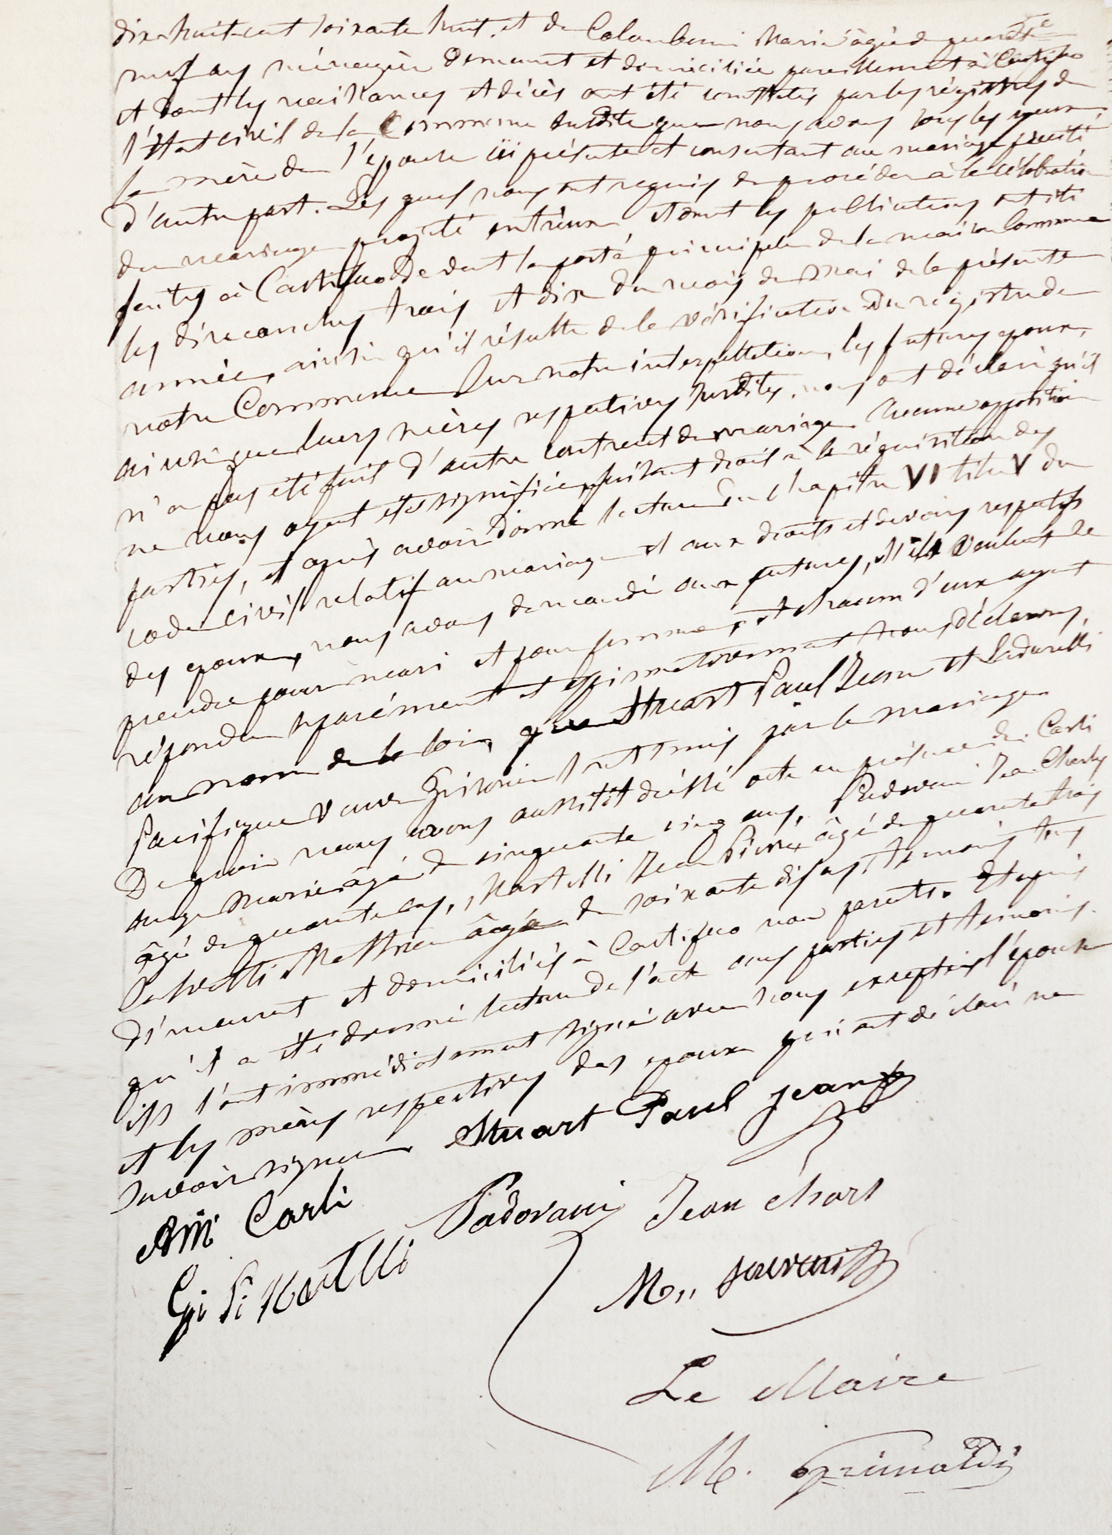 dix huit cent soixante huit. et de Colombani Marie âgée de quarante
neuf ans ménagère demeurant et domiciliée pareillement à Castifao
et dont les naissances et décès ont été constatés par les régistres de
l'état civil de la Commune susdite que nous avons sous les yeux
la mère de l'épouse ici présente et consentant au mariage projeté
d'autre part. Les quels nous ont requis de procéder à la célébration
du mariage projeté entr'eux et dont les publications ont été
faites à Castifao devant la porté principale de la maison Commune
les dimanches trois et dix du mois de Mai de la présente
année, ainsi qu'il résulte de la vérification du régistre de
notre Commune Sur notre interpellation, les futures époux,
ainsi que leurs mères respectives susdites, nous ont déclaré qu'il
n'a pas été fait d'autre contract de mariage Aucune opposition
ne nous ayant été signifiée, faisant droit à la réquisition des
parties, et après avoir donné lecture du Chapitre VI titre V du
code civil relatif au mariage et aux droits et devoirs respectifs
des époux, nous avons demandé aux futures, s'ils veulent se
prendre pour mari et pour femme, et chacun d'eux ayant
répondu séparément et affirmativement nous déclarons,
au nom de la loi, que Stuart Paul Jean et
Pacifique Veuve sont unis par le mariage
De quoi nous avons aussitôt dressé acte en présence de Carli
ange Marie âgé de cinquante cinq ans, Padovani Jean Charles
âgé de quarante ans, Martelli Jean Pierre âgé de quarante trois
âgé de soixante dix ans, témoins tous
démeurant et domiciliés à Castifao non parents. Et après
qu'il a été donné lecture de l'acte aux parties et temoins.
ils l'ont immédiatement signé avec nous exceptés l'épouse
et les mères respectives des époux qui ont déclaré ne
savoir signer Stuart Paul Jean
AM Carli Padovani Jean Charl
Gi Pi Martelli
M.
Le Maire
M. Grimaldi